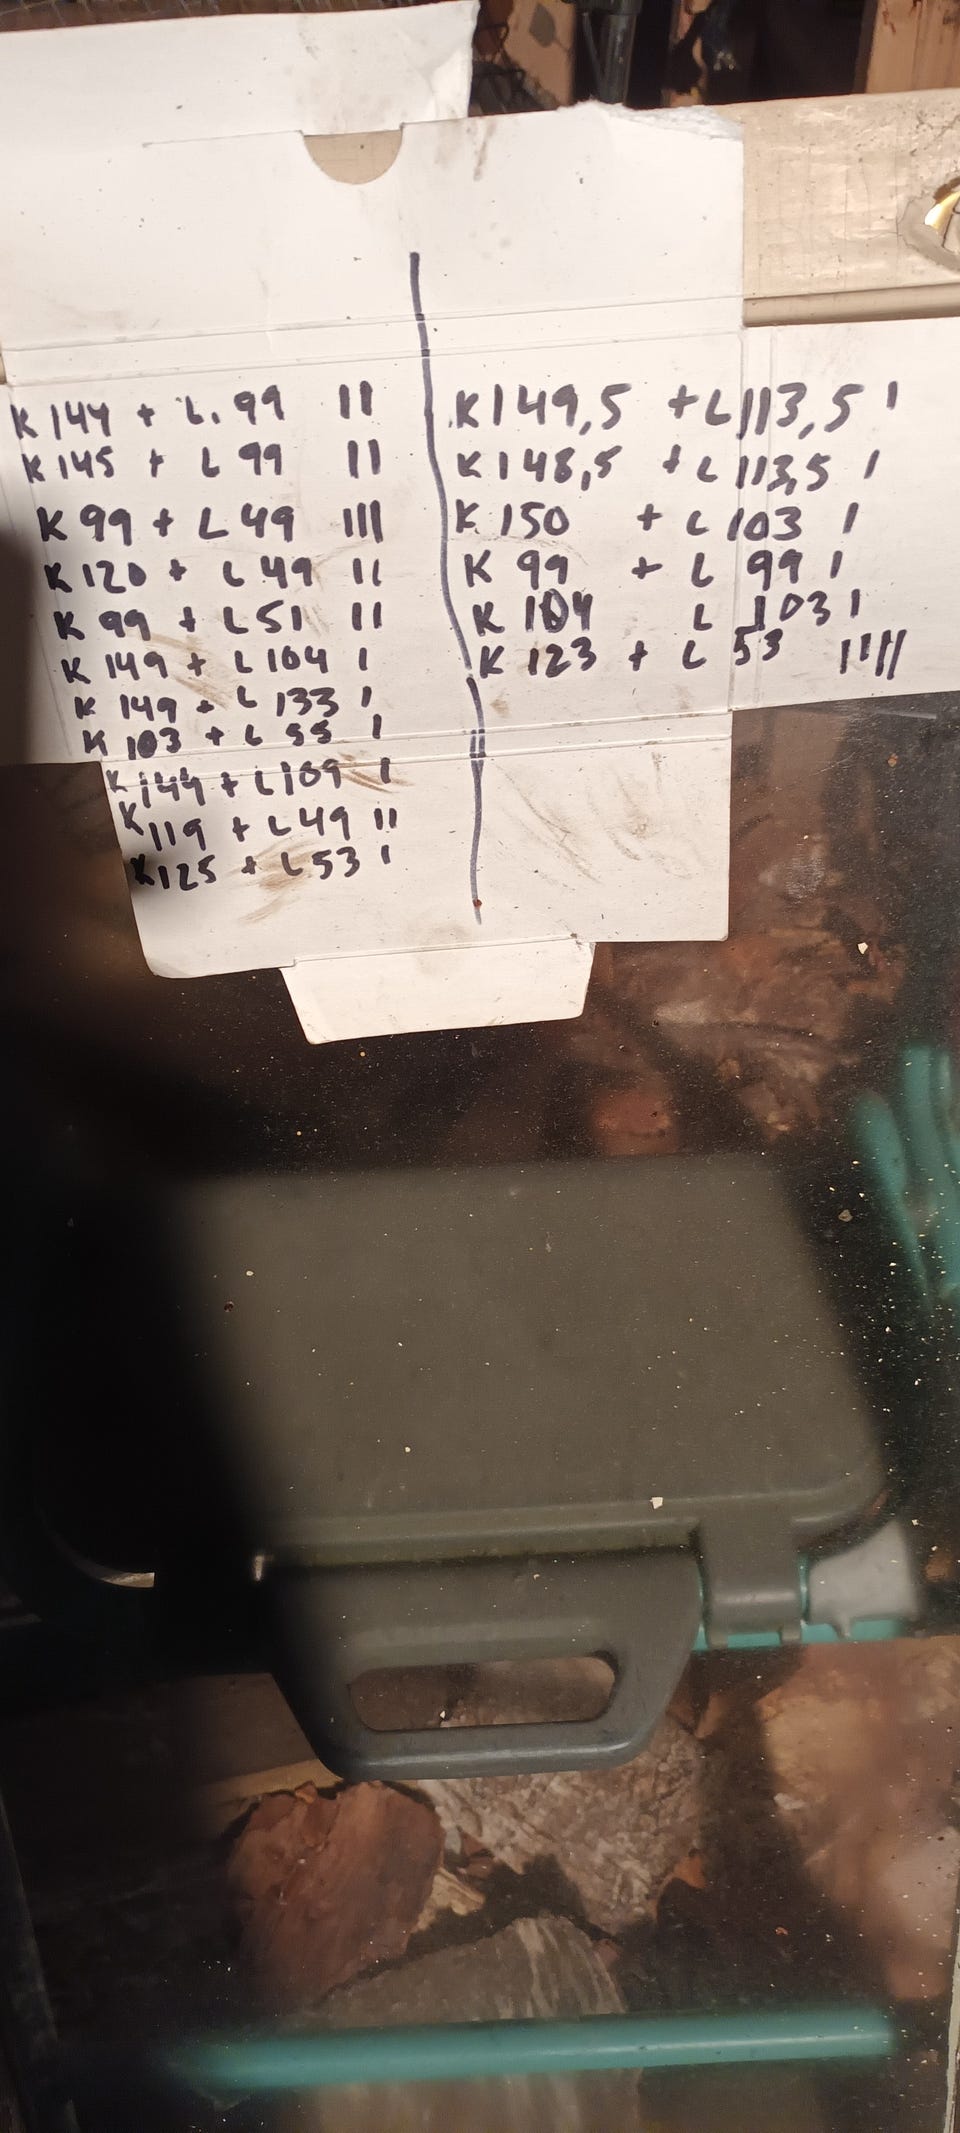 K 144 + L. 99 II
K 145 + L 99 II
K 99 + L 49 III
K 120 + L 49 II
K 99 + L 51 II
K 149 + L 104 I
K 149 + L 133 I
K 103 + L 55 I
K 144 + L 109 I
K 119 + L 49 II
K 125 + L 53 I
K 149,5 + L 113,5 I
K 148,5 + L 113,5 I
K 150 + L 103 I
K 99 + L 99 I
K 104 L 103 I
K 123 + L 53 IIII